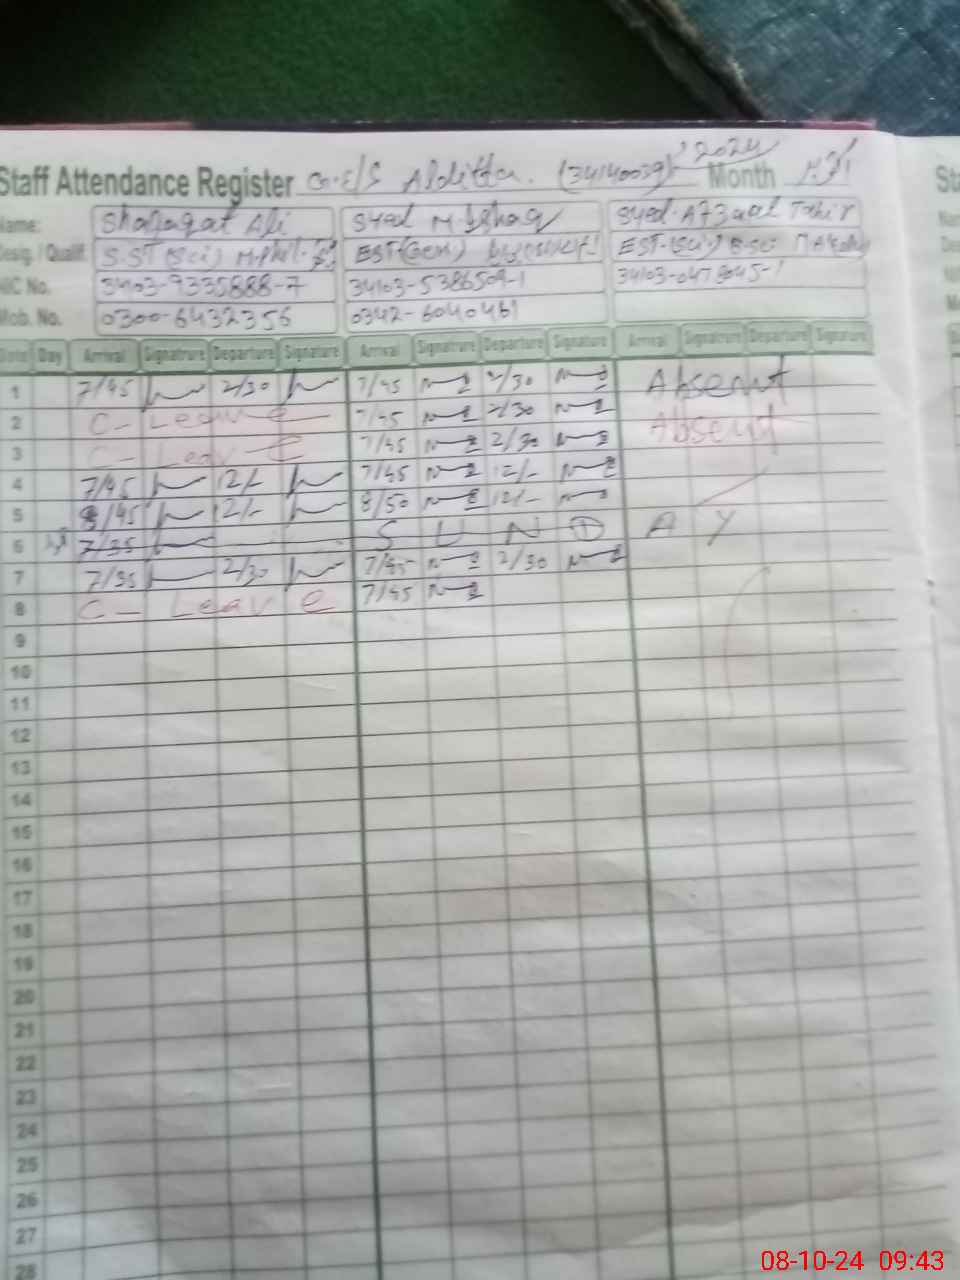 Staff Attendance Register G.E/S Alditta. (34140039) 2024 Month
Name: Shafaqat Ali Syed M. Ishaq Syed Afzaal Tahir
Desig. / Qualif. S.ST (Sci) M.Phil. EST(Gen) EST-(Sci) B.Sc
NIC No. 34103-9335888-7 34103-5386509-1 34103-0478045-1
Mob. No. 0300-6432356 0342-6040461
Date Day Arrival Signatrure Departure Signature Arrival Signatrure Departure Signature Arrival Signatrure Departure Signature
1 7/45 2/30 7/45 2/30 Absent
2 C- Leave 7/45 2/30 Absent
3 C- Leave 7/45 2/30
4 7/45 12/- 7/45 12/-
5 8/45 12/- 8/50 12/-
6 7/35 S U N D A Y
7 7/35 2/30 7/45 2/30
8 C- Leave 7/45
9
10
11
12
13
14
15
16
17
18
19
20
21
22
23
24
25
26
27
28
Sta
08-10-24 09:43